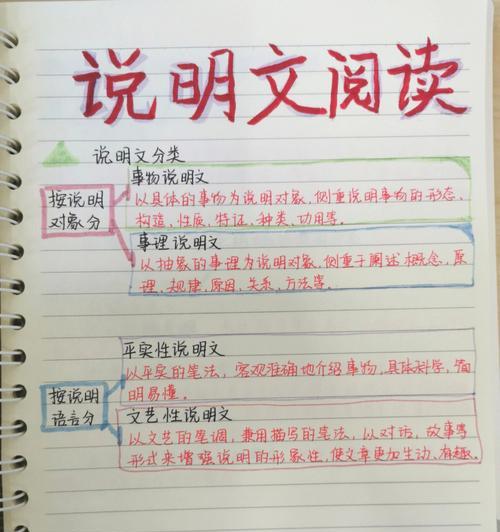 说明文阅读
说明文分类
按说明
对象分
事物说明文
以具体的事物为说明对象,侧重说明事物的形态、
构造、性质、特征、种类、功用等。
事理说明文
以抽象的事理为说明对象,侧重于阐述概念,原
理,规律,原因,关系,方法等。
按说明
语言分
平实性说明文
以平实的笔法,客观准确地介绍事物,具体科学,简
明易懂。
文艺性说明文
以文艺的笔调,兼用描写的笔法,以对话,故事等
形式来增强说明的形象性,使文章更加生动、有趣。